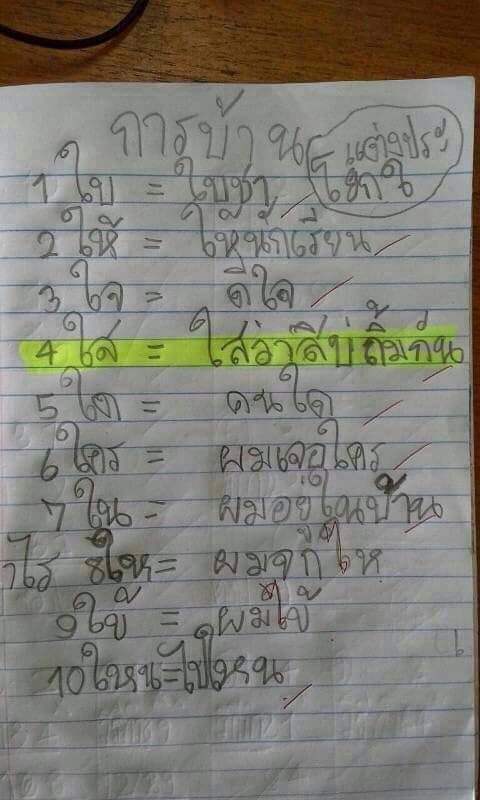 การบ้าน
แต่งประโยกใ
1 ใบ = ใบชา
2 ให้ = ให้นักเรียน
3 ใจ = ดีใจ
4 ใส่ = ใสว่าสิบ่ถิ้มกัน
5 ใด = คนใด
6 ใคร = ผมเจอใคร
7 ใน = ผมอยู่ในบ้าน
8 ให = ผมจักให
9 ใข้ = ผมใข้
10 ใหน = ไปใหน